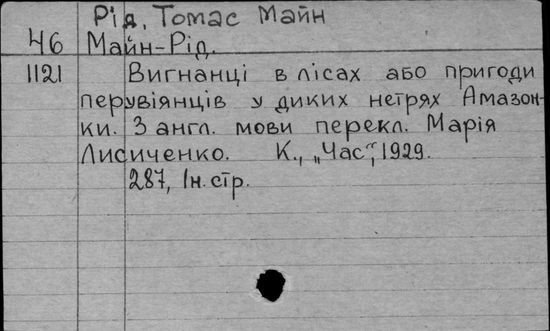 Рід, Томас Майн
46 Майн-Рід.
1121 Вигнанці в лісах або пригоди
перувіянців у диких нетрях Амазон-
ки. З англ. мови перекл. Марія
Лисиченко. К., „Час“, 1929.
287, Ін. стр.